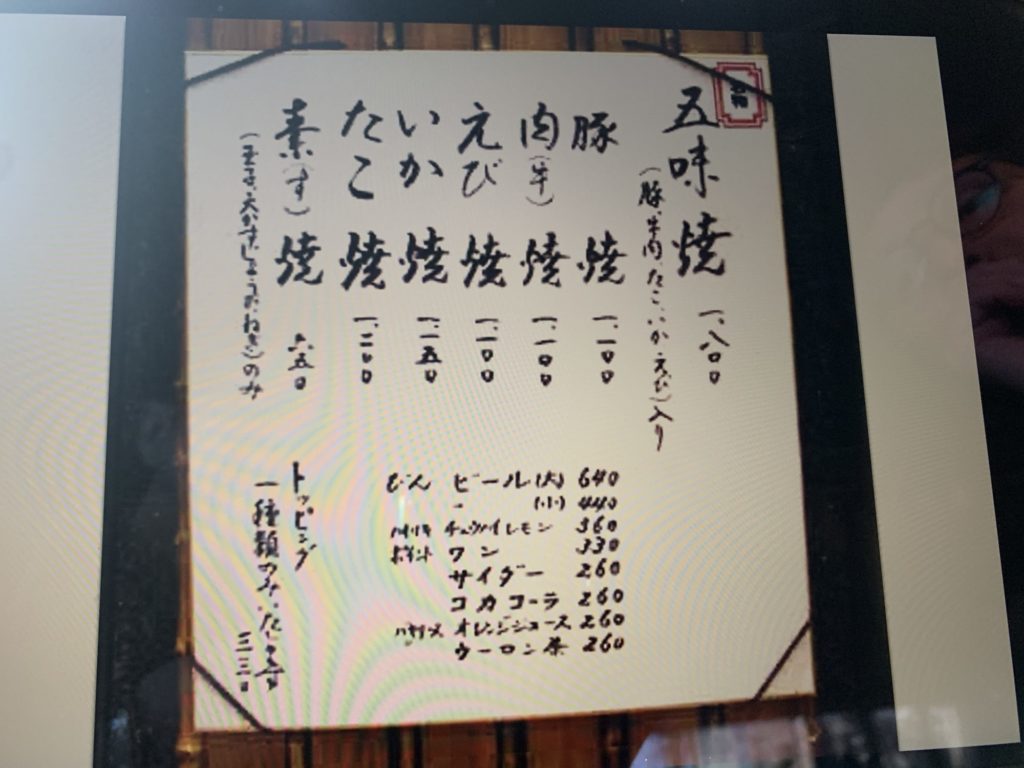 五味焼 一、八〇〇
(豚、牛肉、たこ、いか、えび)入り
豚焼 一、一〇〇
肉(牛)焼 一、一〇〇
えび焼 一、一〇〇
いか焼 一、一五〇
たこ焼 一、二〇〇
素(す)焼 六五〇
(玉子、天かす、しょうが、ねぎ)のみ
びん ビール(大) 640
〃 (小) 440
ハイリキ チュウハイレモン 360
ポイント ワン 330
サイダー 260
コカコーラ 260
バヤリース オレンジジュース 260
ウーロン茶 260
トッピング
一種類のみ
三三〇